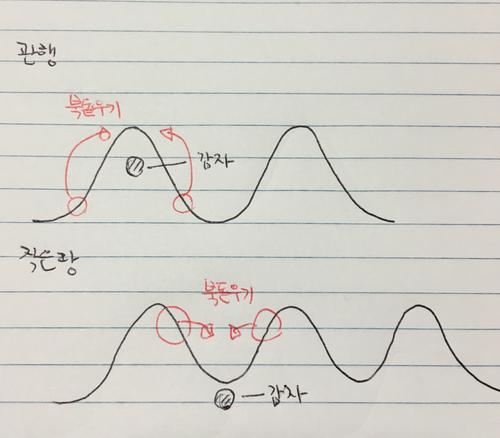 관행
북돋우기
감자
작은랑
북돋우기
감자